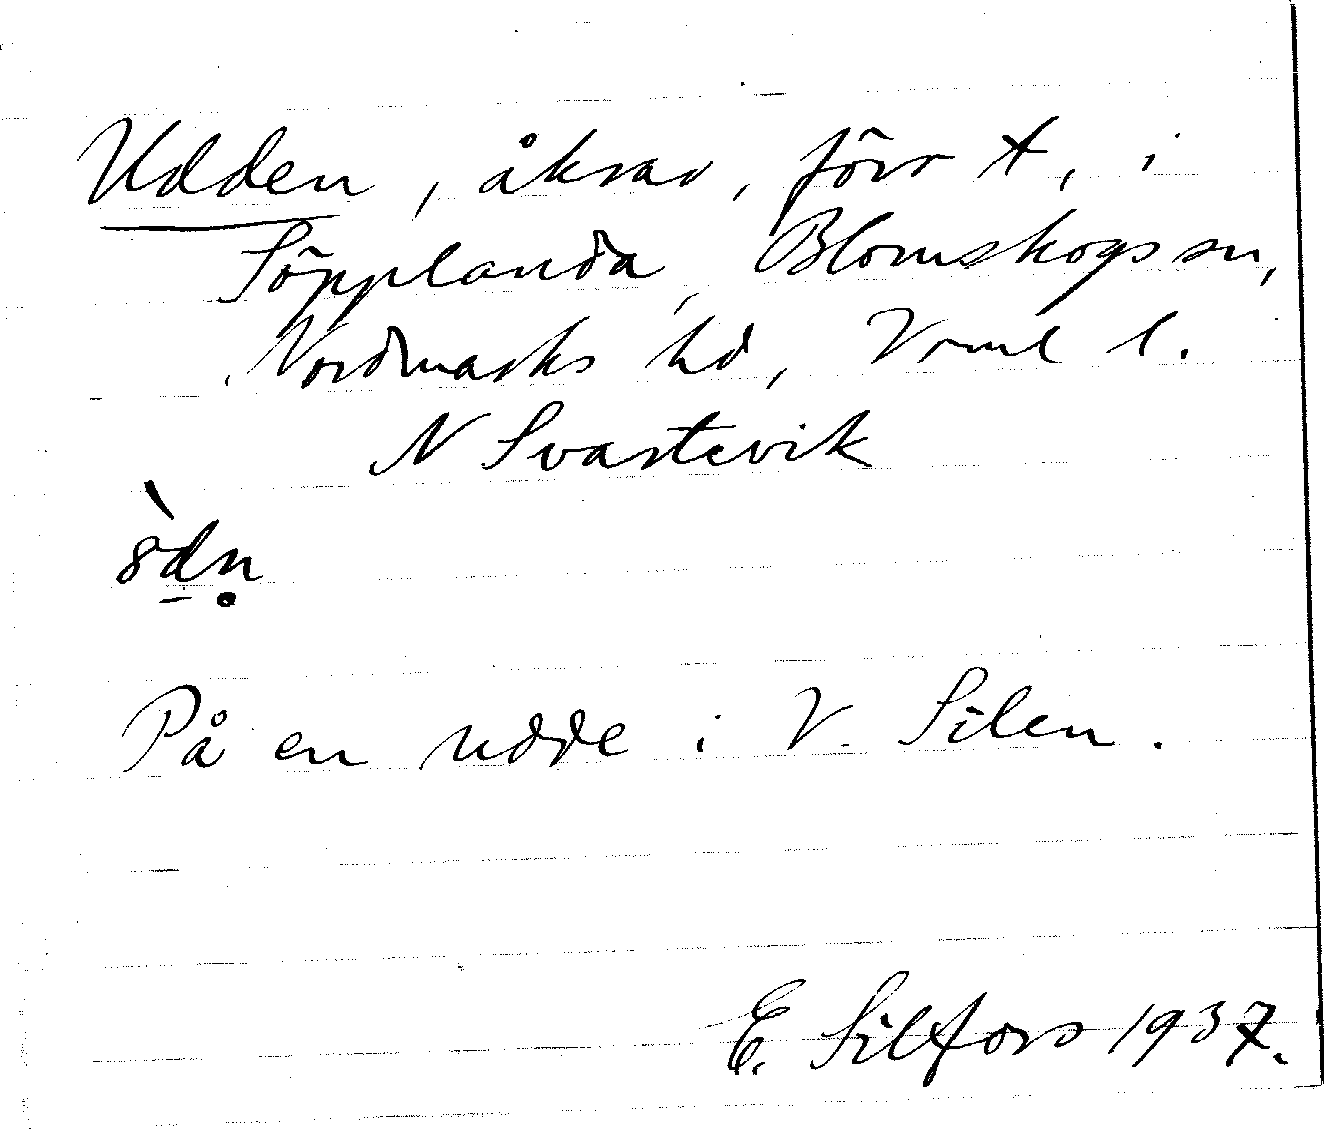 Udden, åkrar, förr t, i
Söpplanda, Blomskogs sn,
Nordmarks hd, Vrml l.
N Svartevik
På en udde i V. Silen.
E. Silfors 1937.